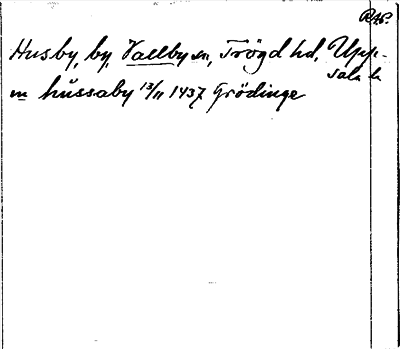 RAp.
Husby, by, Vallby sn, Trögd hd, Upp-
sala l.
in hussaby 13/11 1437 Grödinge